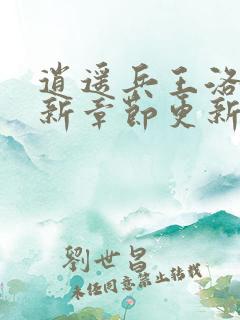 逍遥兵王洛
新章節更新
劉世昌
未经同意禁止转载